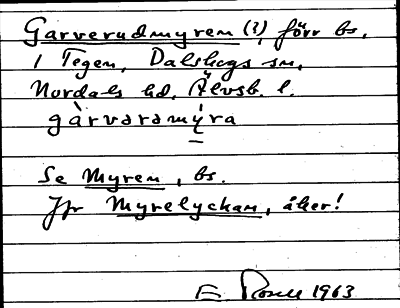 Garverudmyren (?), förr bs.
i Tegen, Dalskogs sn,
Nordals hd, Älvsb. l.
gàrvaramýra
Se Myren, bs.
Jfr Myrelyckan, åker!
E. Rosell 1963